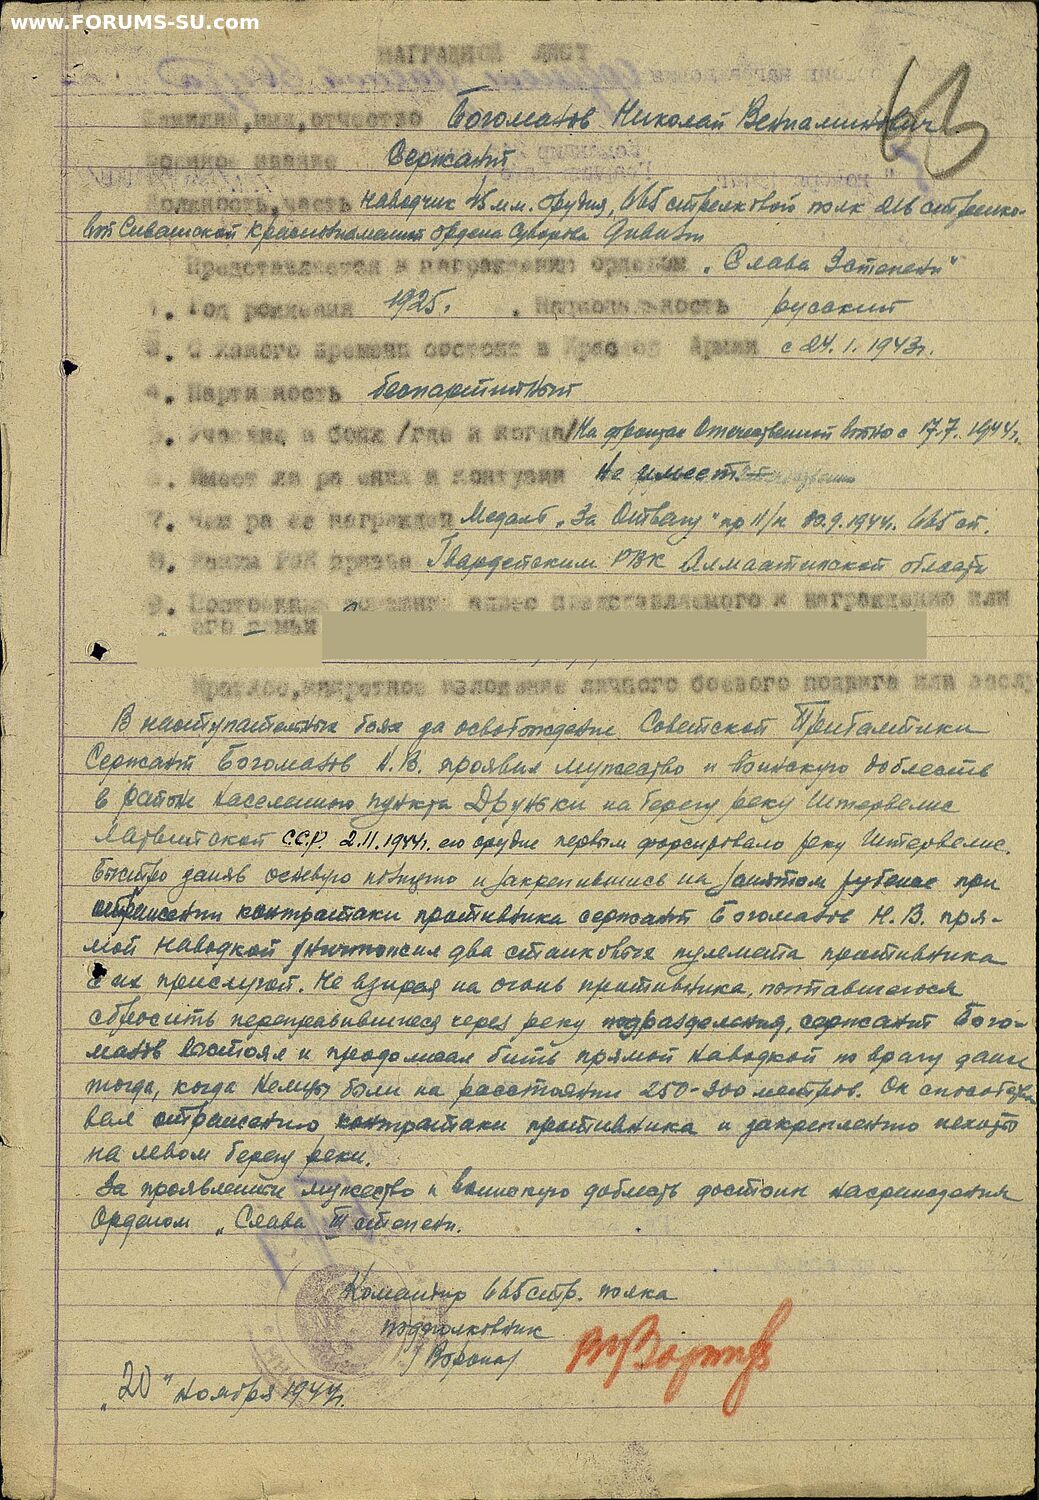 www.FORUMS-SU.com
НАГРАДНОЙ ЛИСТ
Фамилия, имя, отчество Богоманов Николай Вениаминович
Военное звание Сержант
Должность, часть Наводчик 45 м.м. орудия, 665 стрелковой полк 216 стрелко-
вой Сивашской Краснознаменной ордена Суворова Дивизии
Представляется к награждению орденом „Слава 3 степени"
1. Год рождения 1925г. . Национальность русский
3. С какого времени состоит в Красной Армии с 24.1.1943г.
4. Партийность беспартийный
5. Участие в боях /где и когда/ На фронтах Отечественной войны с 17.7.1944г.
6. Имеет ли ранения и контузии Не имеет
7. Чем ранее награжден Медаль „За Отвагу" пр п/п 30.9.1944г. 665 сп.
8. Каким РВК призван Гвардейским РВК Алмаатинской области
9. Постоянный домашний адрес представляемого к награждению или
его семьи
Краткое, конкретное изложение личного боевого подвига или заслу
В наступательных боях за освобождение Советской Прибалтики
Сержант Богоманов Н.В. проявил мужество и воинскую доблесть
в районе населенного пункта Друньки на берегу реки Итервелис
Латвийской С.С.Р. 2.11.1944г. его орудие первым форсировало реку Итервелис.
Быстро заняв огневую позицию и закрепившись на занятом рубеже при
отражении контратаки противника сержант Богоманов Н.В. пря-
мой наводкой уничтожил два станковых пулемета противника
с их прислугой. Не взирая на огонь противника, пытавшегося
сбросить переправившиеся через реку подразделения, сержант Бого-
манов выстоял и продолжал бить прямой наводкой по врагу даже
тогда, когда немцы были на расстоянии 250-300 метров. Он способство
вал отражению контратаки противника и закреплению пехоты
на левом берегу реки.
За проявленное мужество и воинскую доблесть достоин награждения
Орденом „Слава III степени.
Командир 665 стр. полка
подполковник
„20" ноября 1944г.